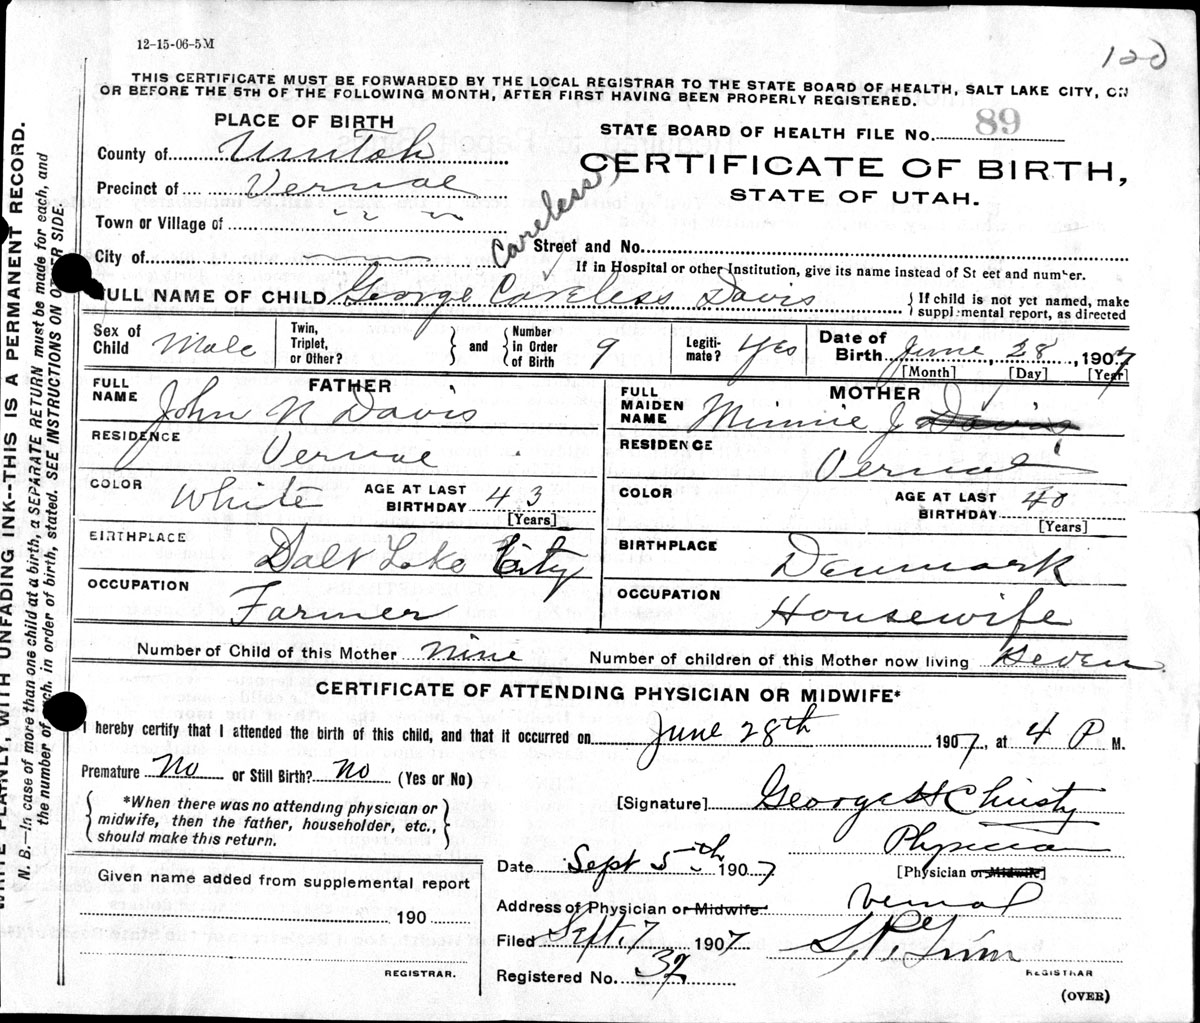 12-15-06-5M
120
THIS CERTIFICATE MUST BE FORWARDED BY THE LOCAL REGISTRAR TO THE STATE BOARD OF HEALTH, SALT LAKE CITY, ON
OR BEFORE THE 5TH OF THE FOLLOWING MONTH, AFTER FIRST HAVING BEEN PROPERLY REGISTERED.
PLACE OF BIRTH
STATE BOARD OF HEALTH FILE NO. 89
County of Unitah
CERTIFICATE OF BIRTH,
Precinct of Vernal
STATE OF UTAH.
Town or Village of
Careless
City of
Street and No.
If in Hospital or other Institution, give its name instead of St eet and number.
FULL NAME OF CHILD George Careless Davis
If child is not yet named, make
supplemental report, as directed
Sex of Child Male
Twin, Triplet, or Other?
and
Number in Order of Birth 9
Legiti-mate? Yes
Date of Birth June 28, 1907
[Month] [Day] [Year]
FATHER
FULL NAME John N Davis
MOTHER
FULL MAIDEN NAME Minnie J Davis
RESIDENCE Vernal
RESIDENCE Vernal
COLOR White
AGE AT LAST BIRTHDAY 43
[Years]
COLOR
AGE AT LAST BIRTHDAY 40
[Years]
BIRTHPLACE Salt Lake City
BIRTHPLACE Denmark
OCCUPATION Farmer
OCCUPATION Housewife
Number of Child of this Mother Nine
Number of children of this Mother now living Seven
CERTIFICATE OF ATTENDING PHYSICIAN OR MIDWIFE*
I hereby certify that I attended the birth of this child, and that it occurred on June 28th 1907, at 4 P M.
Premature No or Still Birth? No (Yes or No)
*When there was no attending physician or
midwife, then the father, householder, etc.,
should make this return.
[Signature] George H Christy
Physician
[Physician or Midwife]
Date Sept 5th 1907
Given name added from supplemental report
190
REGISTRAR.
Address of Physician or Midwife Vernal
Filed Sept. 7 1907
REGISTRAR
Registered No. 32
(OVER)
WRITE PLAINLY, WITH UNFADING INK--THIS IS A PERMANENT RECORD.
N. B.—In case of more than one child at a birth, a SEPARATE RETURN must be made for each, and
the number of each, in order of birth, stated. SEE INSTRUCTIONS ON OTHER SIDE.